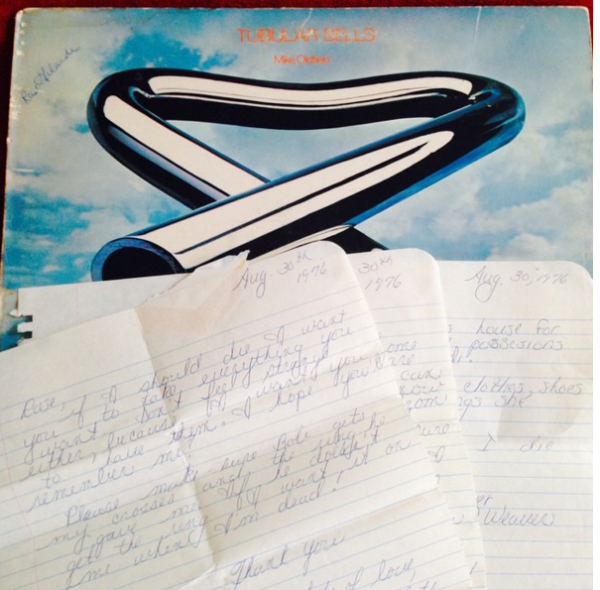 TUBULAR BELLS
Mike Oldfield
Aug. 30th
1976
if I should die I want
you to take everything you
want & don't feel strange
either, because I want you
to have them. I hope you
remember me.
Please make sure Bob gets
my crosses and the ring he
gave me. If he doesn't
get the ring I want it on
me when I'm dead!
Thank you
of love,
30th
1976
one
are
can
Aug. 30, 1976
house for
possessions
clothes, shoes
she
I die
Weaver